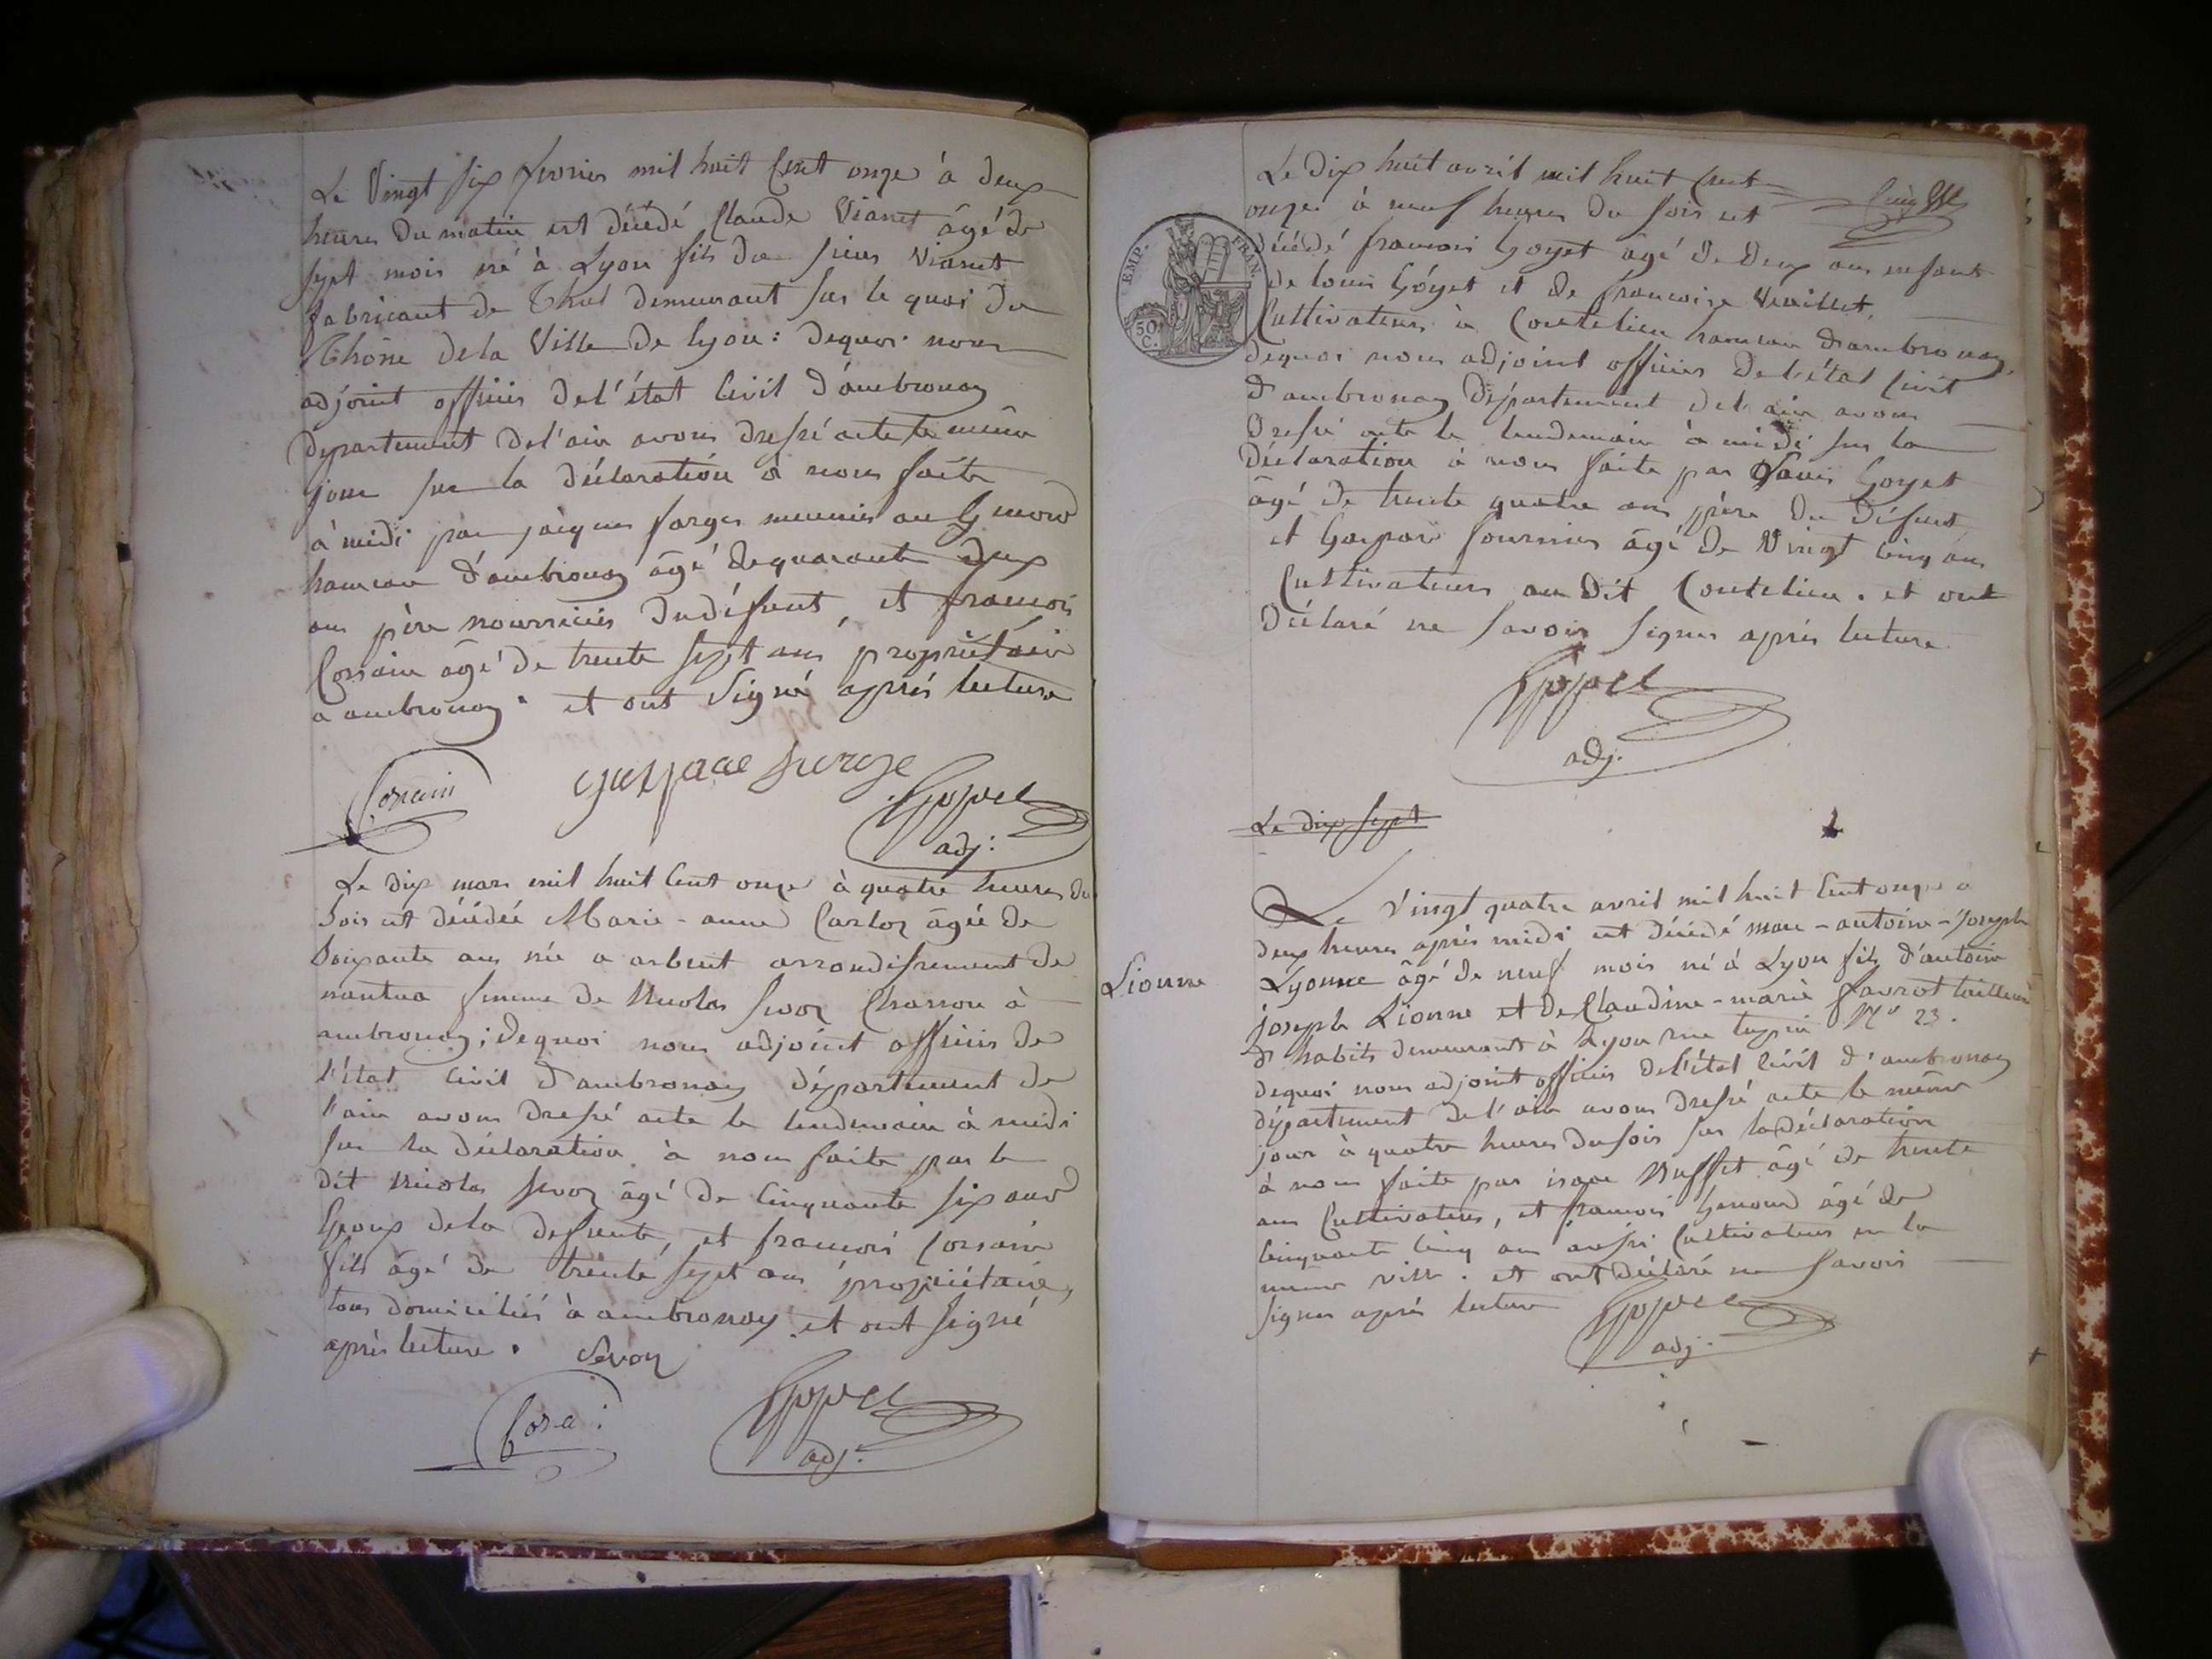 Le Vingt six fevrier mil huit Cent onze à deux
heures du matin est décédé Claude Vianet âgé de
sept mois né à Lyon fils du sieur Vianet
fabricant de Thul demeurant sur le quai du
Rhône de la Ville de Lyon : dequoi nous
adjoint officier de l'état Civil d'ambronay
département de l'ain avons dressé acte le même
jour sur la déclaration à nous faite
à midi par jacques farges meunier au
hameau d'ambronay âgé de quarante deux
ans père nourricier du défunt, et françois
Corsain âgé de trente sept ans propriétaire
a ambronay. et ont Signé après lecture
Corsain
adj:
Le dix mars mil huit Cent onze à quatre heures du
soir est décédée Marie-anne Carloz âgée de
soixante ans née a arbent arrondissement de
nantua femme de Nicolas Sevoz Charron à
ambronay ; dequoi nous adjoint officier de
l'état Civil d'ambronay département de
l'ain avons dressé acte le lendemain à midi
sur la déclaration à nous faite par le
dit Nicolas Sevoz âgé de Cinquante six ans
Epoux de la defunte, et francois Corsain
fils âgé de trente sept ans propriétaire,
tous domiciliés à ambronay. et ont signé
après lecture. Sevoz
adj:
EMP. FRAN.
50 C.
Le dix huit avril mil huit Cent
onze à neuf heures du soir est
décédé francois Goyet âgé de deux ans enfant
de louis Goyet et de francoise
Cultivateurs à Coutelieu hameau d'ambronay,
dequoi nous adjoint officier de l'état Civil
d'ambronay département de l'ain avons
dressé acte le lendemain à midi sur la
Déclaration à nous faite par Louis Goyet
âgé de trente quatre ans père du défunt
et Gaspar fournier âgé de Vingt Cinq ans
Cultivateurs au dit Coutelieu. et ont
déclaré ne savoir signer après lecture
adj.
Le dix sept
Le Vingt quatre avril mil huit Cent onze a
deux heures après midi est décédé marc-antoine-Joseph
Lionne
Lyonne âgé de neuf mois né à Lyon fils d'antoine
joseph Lionne et de Claudine-marie favrot tailleur
d'habits demeurant à Lyon rue tupin N° 23.
dequoi nous adjoint officier de l'état Civil d'ambronay
département de l'ain avons dressé acte le même
jour à quatre heures du soir sur la déclaration
à nous faite par isaac âgé de trente
ans Cultivateur, et francois Genoud âgé de
Cinquante Cinq ans aussi Cultivateur en la
meme ville. et ont déclaré ne savoir
signer après lecture
adj.